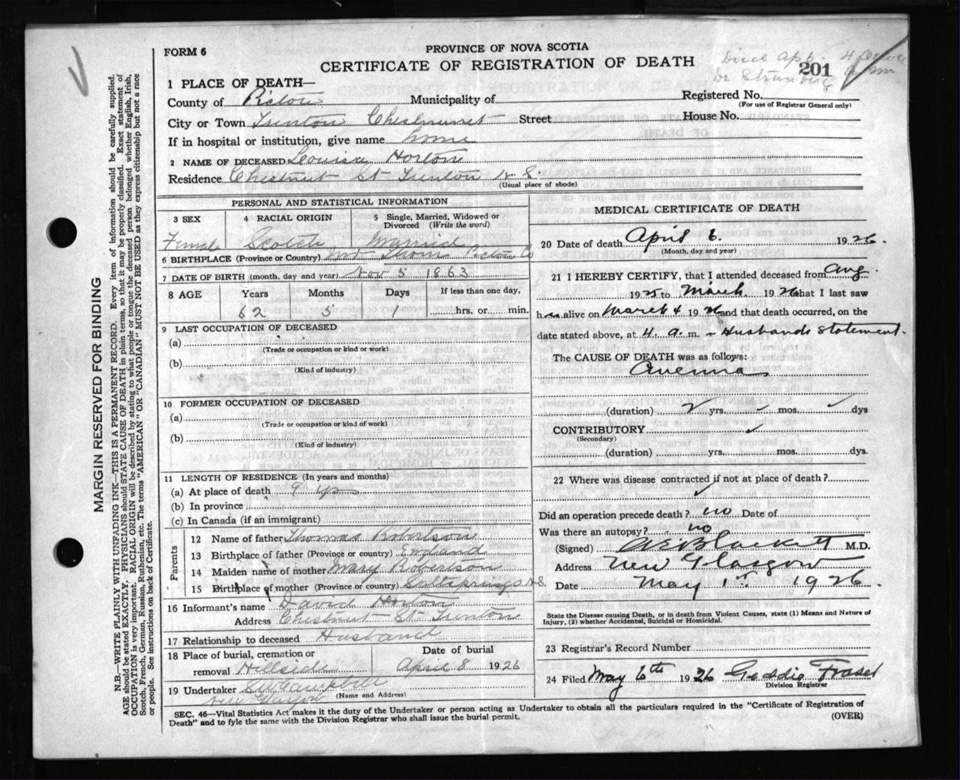 FORM 6
PROVINCE OF NOVA SCOTIA
CERTIFICATE OF REGISTRATION OF DEATH
Died Apl 6
201
1 PLACE OF DEATH—
County of Pictou Municipality of
Registered No.
(For use of Registrar General only)
City or Town Trenton Chestnut Street House No.
If in hospital or institution, give name home
2 NAME OF DECEASED Louisa Horton
Residence Chestnut St Trenton N S.
(Usual place of abode)
PERSONAL AND STATISTICAL INFORMATION
3 SEX 4 RACIAL ORIGIN 5 Single, Married, Widowed or Divorced (Write the word)
Female Scotch Married
6 BIRTHPLACE (Province or Country) Pictou Co
7 DATE OF BIRTH (month, day and year) Nov 5 1863
8 AGE Years Months Days If less than one day,
62 5 1 hrs. or min.
9 LAST OCCUPATION OF DECEASED
(a)
(Trade or occupation or kind or work)
(b)
(Kind of industry)
10 FORMER OCCUPATION OF DECEASED
(a)
(Trade or occupation or kind of work)
(b)
(Kind of industry)
11 LENGTH OF RESIDENCE (In years and months)
(a) At place of death 9 yrs
(b) In province
(c) In Canada (if an immigrant)
Parents
12 Name of father Thomas Robertson
13 Birthplace of father (Province or country) England
14 Maiden name of mother Mary Robertson
15 Birthplace of mother (Province or country) Saltsprings N.S.
16 Informant's name David Horton
Address Chestnut St Trenton
17 Relationship to deceased Husband
18 Place of burial, cremation or removal Hillside
Date of burial
April 8 1926
19 Undertaker
(Name and Address)
New Glasgow
MEDICAL CERTIFICATE OF DEATH
20 Date of death April 6. 1926.
(Month, day and year)
21 I HEREBY CERTIFY, that I attended deceased from Aug.
1925 to March 1926 that I last saw
h alive on March 4 1926 and that death occurred, on the
date stated above, at 4 a. m. – Husbands Statement.
The CAUSE OF DEATH was as follows:
(duration) 2 yrs. ✓ mos. ✓ dys
CONTRIBUTORY ✓
(Secondary)
(duration) yrs. mos. dys.
22 Where was disease contracted if not at place of death?
✓
Did an operation precede death? no Date of
Was there an autopsy? no
(Signed) M.D.
Address New Glasgow
Date May 1st 1926.
State the Disease causing Death, or in death from Violent Causes, state (1) Means and Nature of
Injury, (2) whether Accidental, Suicidal or Homicidal.
23 Registrar's Record Number
24 Filed May 6th 1926 Geddie Fraser
Division Registrar
SEC. 46—Vital Statistics Act makes it the duty of the Undertaker or person acting as Undertaker to obtain all the particulars required in the "Certificate of Registration of
Death" and to fyle the same with the Division Registrar who shall issue the burial permit.
(OVER)
MARGIN RESERVED FOR BINDING
N.B.—WRITE PLAINLY WITH UNFADING INK—THIS IS A PERMANENT RECORD. Every item of information should be carefully supplied.
AGE should be stated EXACTLY. PHYSICIANS should STATE CAUSE OF DEATH in plain terms, so that it may be properly classified. Exact statement of
OCCUPATION is very important. RACIAL ORIGIN will be described by stating to what people or tongue the deceased person belonged whether English, Irish,
Scotch, French, German, Russian, Ruthenian, etc. The terms "AMERICAN" OR "CANADIAN" MUST NOT BE USED as they express citizenship but not a race
or people. See instructions on back of Certificate.